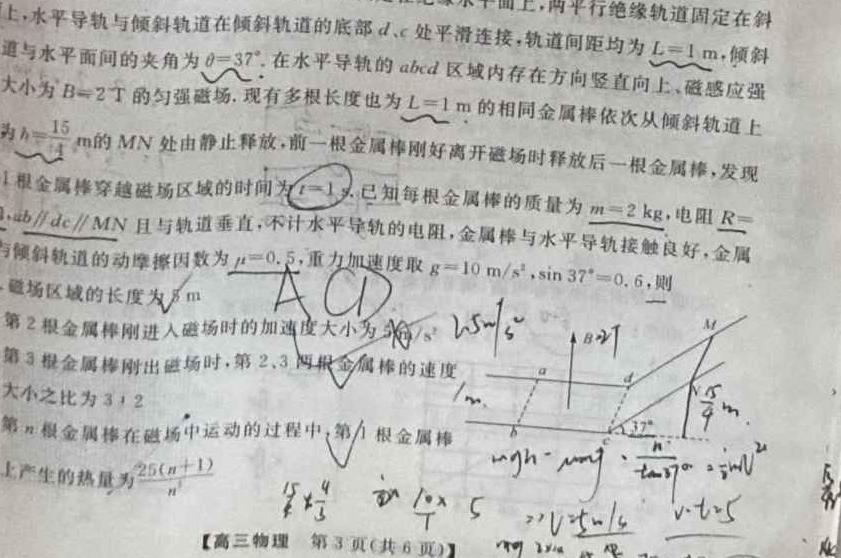 水平面上,两平行绝缘轨道固定在斜
上,水平导轨与倾斜轨道在倾斜轨道的底部 d、c 处平滑连接,轨道间距均为 L=1 m,倾斜
道与水平面间的夹角为 θ=37°.在水平导轨的 abcd 区域内存在方向竖直向上、磁感应强
大小为 B=2 T 的匀强磁场.现有多根长度也为 L=1 m 的相同金属棒依次从倾斜轨道上
为 h=15/4 m的 MN 处由静止释放,前一根金属棒刚好离开磁场时释放后一根金属棒,发现
1 根金属棒穿越磁场区域的时间为 t=1 s.已知每根金属棒的质量为 m=2 kg,电阻 R=
,ab∥dc∥MN 且与轨道垂直,不计水平导轨的电阻,金属棒与水平导轨接触良好,金属
与倾斜轨道的动摩擦因数为 μ=0.5,重力加速度取 g=10 m/s²,sin 37°=0.6,则
磁场区域的长度为 5 m
ACD
第 2 根金属棒刚进入磁场时的加速度大小为 5 m/s² 2.5m/s²
第 3 根金属棒刚出磁场时,第 2、3 两根金属棒的速度
大小之比为 3:2
第 n 根金属棒在磁场中运动的过程中,第 1 根金属棒
上产生的热量为 25(n+1)/n³
B 2T
M
a
d
b
c
37°
1m
15/4 m
mgh - μmg · h/tan37° = ½mV²
15/4 × 4/3
5
⇒V=5m/s
v·t=5
【高三物理 第 3 页(共 6 页)】